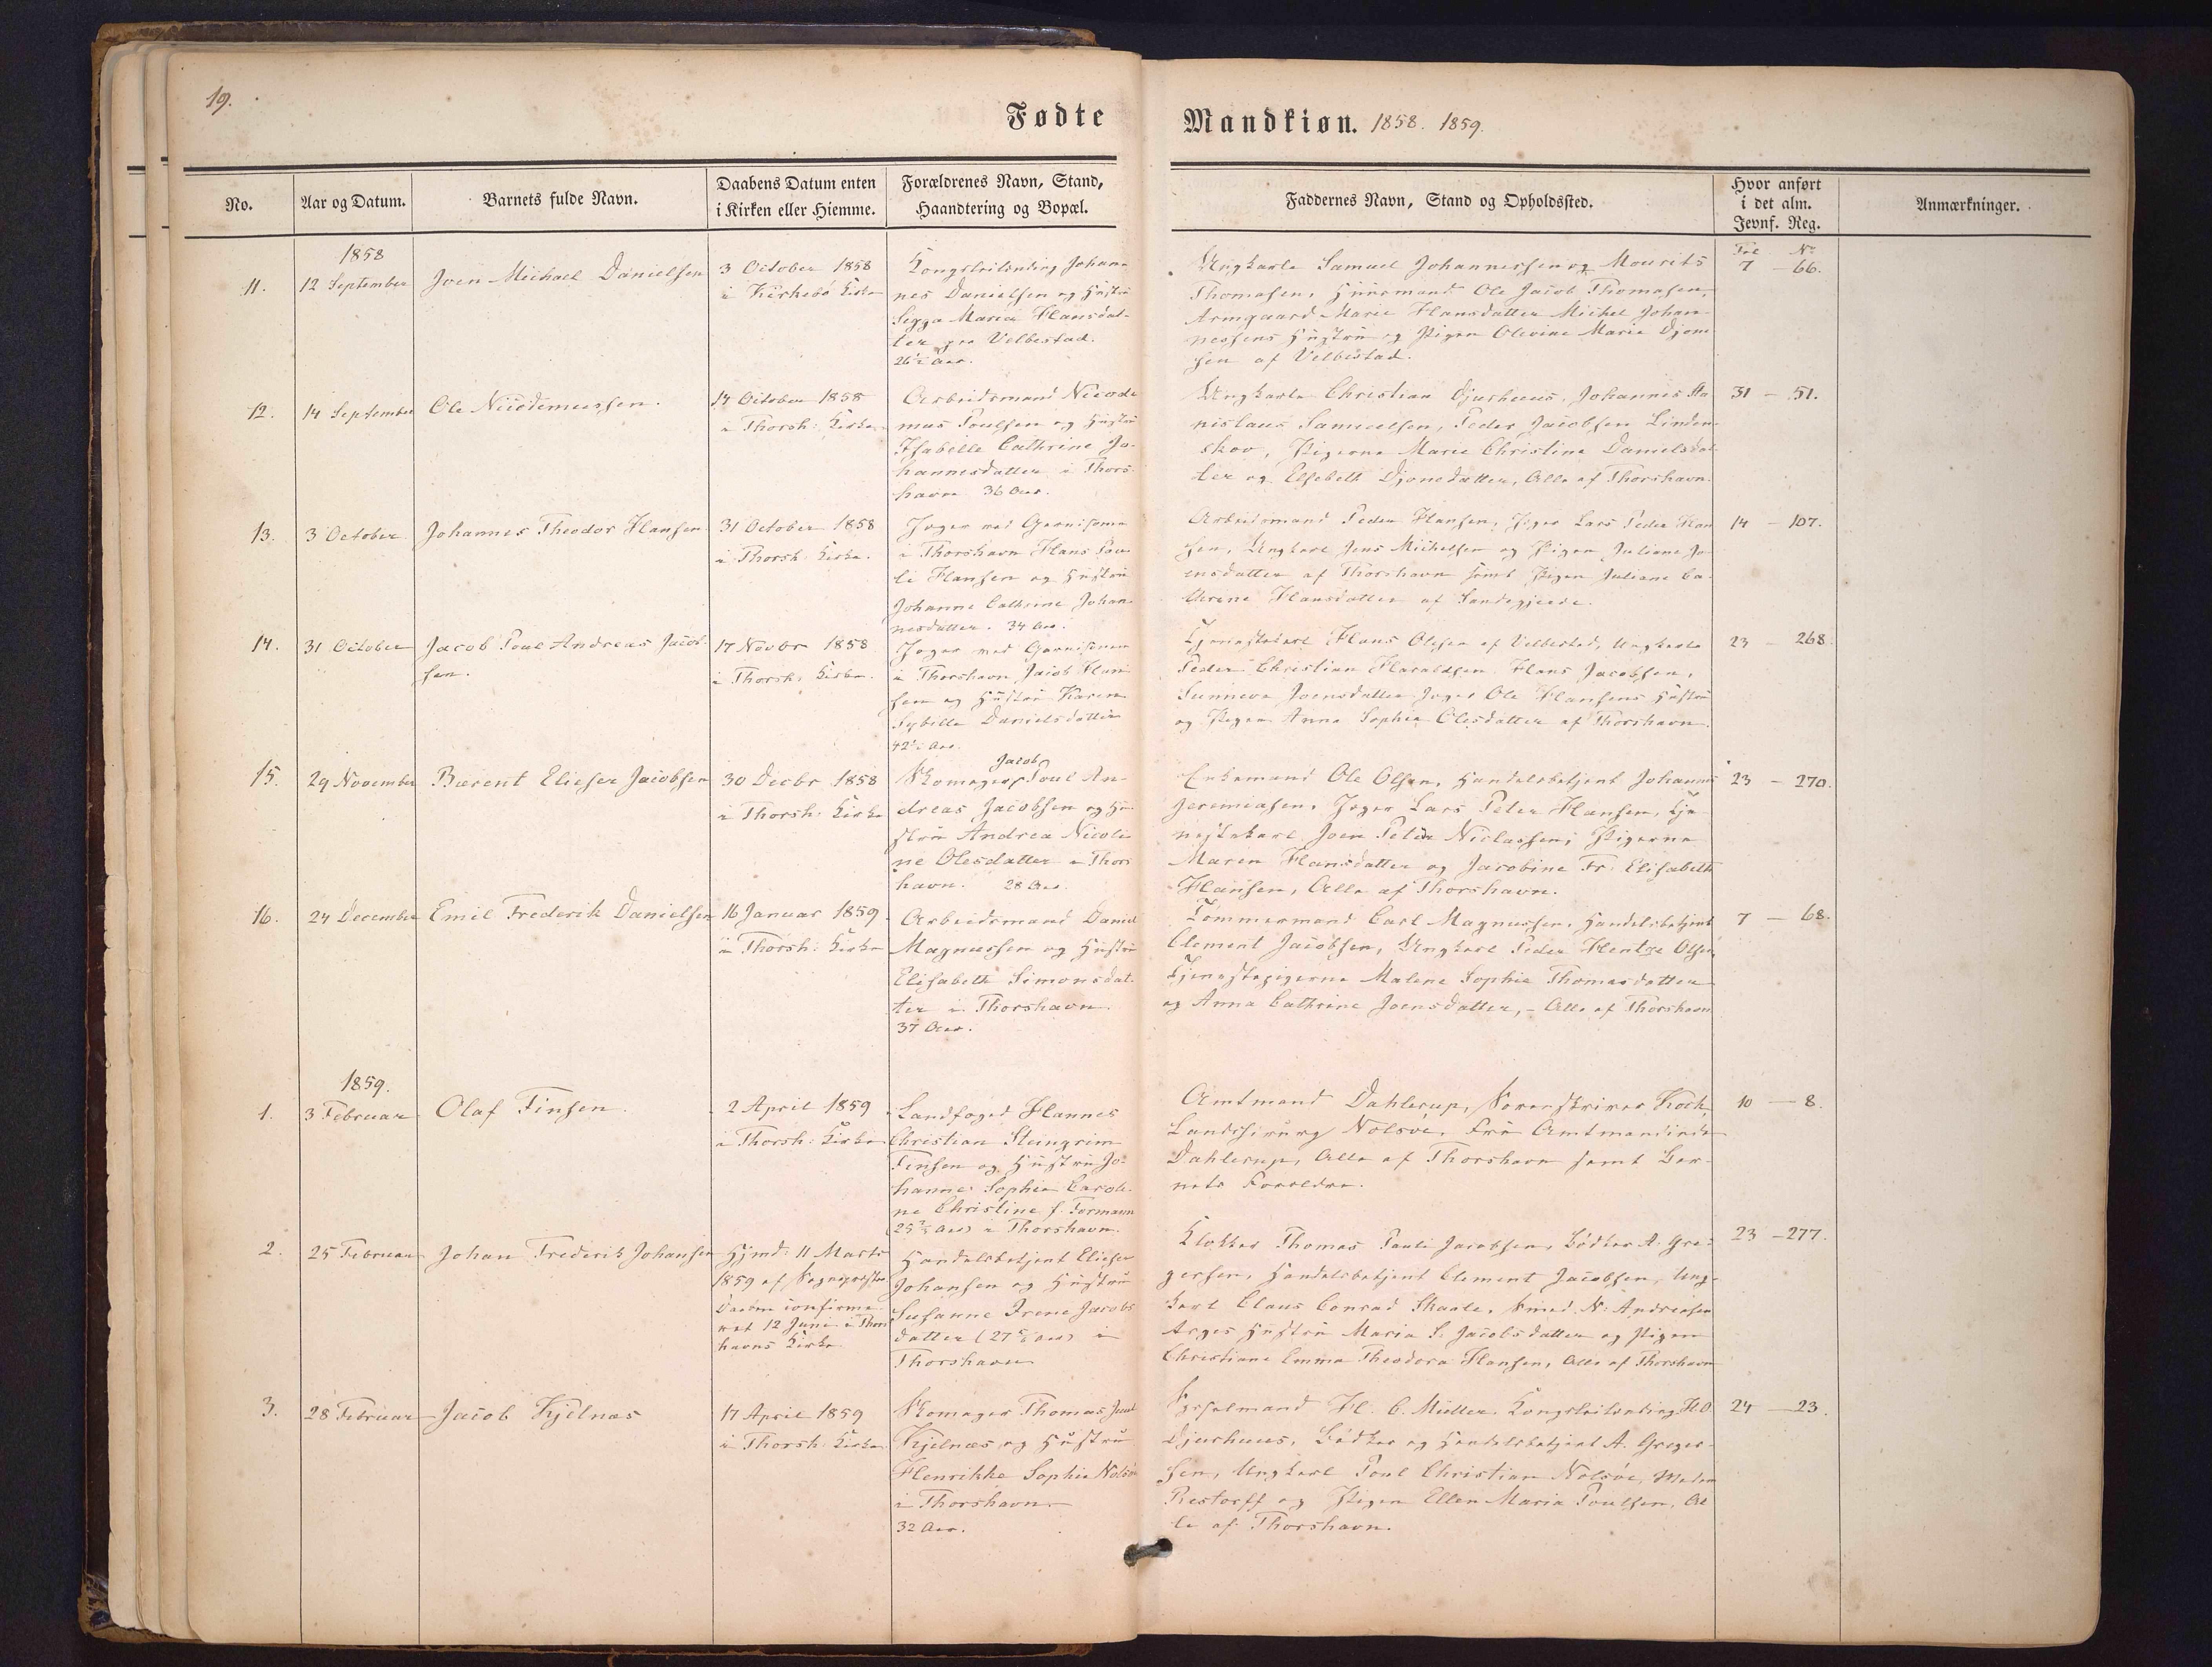 19.
Fødte
Mandkiøn. 1858. 1859.
No.
Aar og Datum.
Barnets fulde Navn.
Daabens Datum enten
i Kirken eller Hiemme.
Forældrenes Navn, Stand,
Haandtering og Bopæl.
Faddernes Navn, Stand og Opholdssted.
Hvor anført
i det alm.
Jevnf. Reg.
Anmærkninger.
1858
11.
12 September
Joen Michael Danielsen
3 October 1858
i Kirkebö Kirke
Kongsleilending Johan-
nes Danielsen og Hustru
Sigga Maria Hansdat-
ter paa Velbestad.
26½ Aar.
Ungkarle Samuel Johannessen og Mourits
Thomasen, Huusmand Ole Jacob Thomasen,
Armgaard Marie Hansdatter Michel Johan-
nessens Hustru og Pigen Olevine Marie Djone-
sen af Velbestad.
Fol No
7 - 66.
12.
14 September
Ole Nicodemussen.
17 October 1858
i Thorsh: Kirke
Arbeidsmand Nicode
mus Poulsen og Hustru
Isabelle Cathrine Jo-
hannesdatter i Thors-
havn 36 Aar.
Ungkarle Christian Djurhuus, Johannes Sta
nislaus Samuelsen, Peder Jacobsen Linden-
skov, Pigerne Marie Christine Danielsdat
ter og Elsebeth Djonedatter, Alle af Thorshavn.
31 - 51.
13.
3 October
Johannes Theodor Hansen
31 October 1858
i Thorsh: Kirke.
Jæger ved Garnisonen
i Thorshavn Hans Pou-
li Hansen og Hustru
Johanne Cathrine Johan-
nesdatter. 34 Aar.
Arbeidsmand Peder Hansen, Jæger Lars Peder Han
sen, Ungkarl Jens Michelsen og Pigen Juliane Jo-
ensdatter af Thorshavn samt Pigen Juliane Ca-
thrine Hansdatter af Sandegjerde.
14 - 107.
14.
31 October
Jacob Poul Andreas Jacob-
sen.
17 Novbr 1858
i Thorsh: Kirke.
Jæger ved Garnisonen
i Thorshavn Jacob Han
sen og Hustru Karen
Sybille Danielsdatter
42½ Aar.
Tjenestekarl Hans Olesen af Velbestad, Ungkarle
Peder Christian Haraldsen Hans Jacobsen,
Sunneva Joensdatter Jæger Ole Hansens Hustru
og Pigen Anna Sophie Olesdatter af Thorshavn.
23 - 268.
15.
29 November
Barent Elieser Jacobsen
30 Decbr 1858
i Thorsh: Kirke
Jacob
Skomager Poul An-
dreas Jacobsen og Hu-
stru Andrea Nicoli-
ne Olesdatter i Thors
havn. 28 Aar.
Enkemand Ole Olsen, Handelsbetjent Johannes
Jeremiasen, Jæger Lars Peter Hansen, Tje-
nestekarl Joen Peter Niclassen, Pigerne
Maren Hansdatter og Jacobine Fr. Elisabeth
Hansen, Alle af Thorshavn.
23 - 270.
16.
24 December
Emil Frederik Danielsen
16 Januar 1859.
i Thorsh: Kirke
Arbeidsmand Daniel
Magnussen og Hustru
Elisabeth Simonsdat-
ter i Thorshavn.
37 Aar.
Tömmermand Carl Magnussen, Handelsbetjent
Clement Jacobsen, Ungkarl Peder Hentze Olsen,
Tjenestepigerne Malene Sophie Thomasdatter
og Anna Cathrine Joensdatter, - Alle af Thorshavn
7 - 68.
1859.
1.
3 Februar
Olaf Finsen.
2 April 1859
i Thorsh: Kirke
Landfoged Hannes
Christian Steingrim
Finsen og Hustru Jo-
hanne Sophie Caroli-
ne Christine f. Formann
25⅔ Aar i Thorshavn.
Amtmand Dahlerup, Sorenskriver Koch,
Landchirurg Nolsöe, Fru Amtmandinde
Dahlerup, Alle af Thorshavn samt Bar-
nets Forældre.
10 - 8.
2.
25 Februar
Johan Frederik Johansen
Hjmd: 11 Marts
1859 af Sognepræsten
Daaben confirme-
ret 12 Juni i Thors
havns Kirke
Handelsbetjent Elieser
Johansen og Hustru
Susanne Irene Jacobs
datter (27 Aar) i
Thorshavn
Klokker Thomas Pauli Jacobsen, Bödker A. Gre-
gersen, Handelsbetjent Clement Jacobsen, Ung-
karl Claus Conrad Skaale, Smed N. Andreasen
Arges Hustru Maria S. Jacobsdatter og Pigen
Christiane Emma Theodora Hansen, Alle af Thorshavn
23 - 277.
3.
28 Februar
Jacob Kjelnæs
17 April 1859
i Thorsh: Kirke
Skomager Thomas Juul
Kjelnæs og Hustru
Henrikke Sophie Nolsöe
i Thorshavn
32 Aar.
Sysselmand H. C. Müller, Kongsleilending H. O.
Djurhuus, Bödker og Handelsbetjent A. Greger-
sen, Ungkarl Poul Christian Nolsöe, Madam
Restorff og Pigen Ellen Maria Poulsen, Al-
le af Thorshavn.
24 - 23.